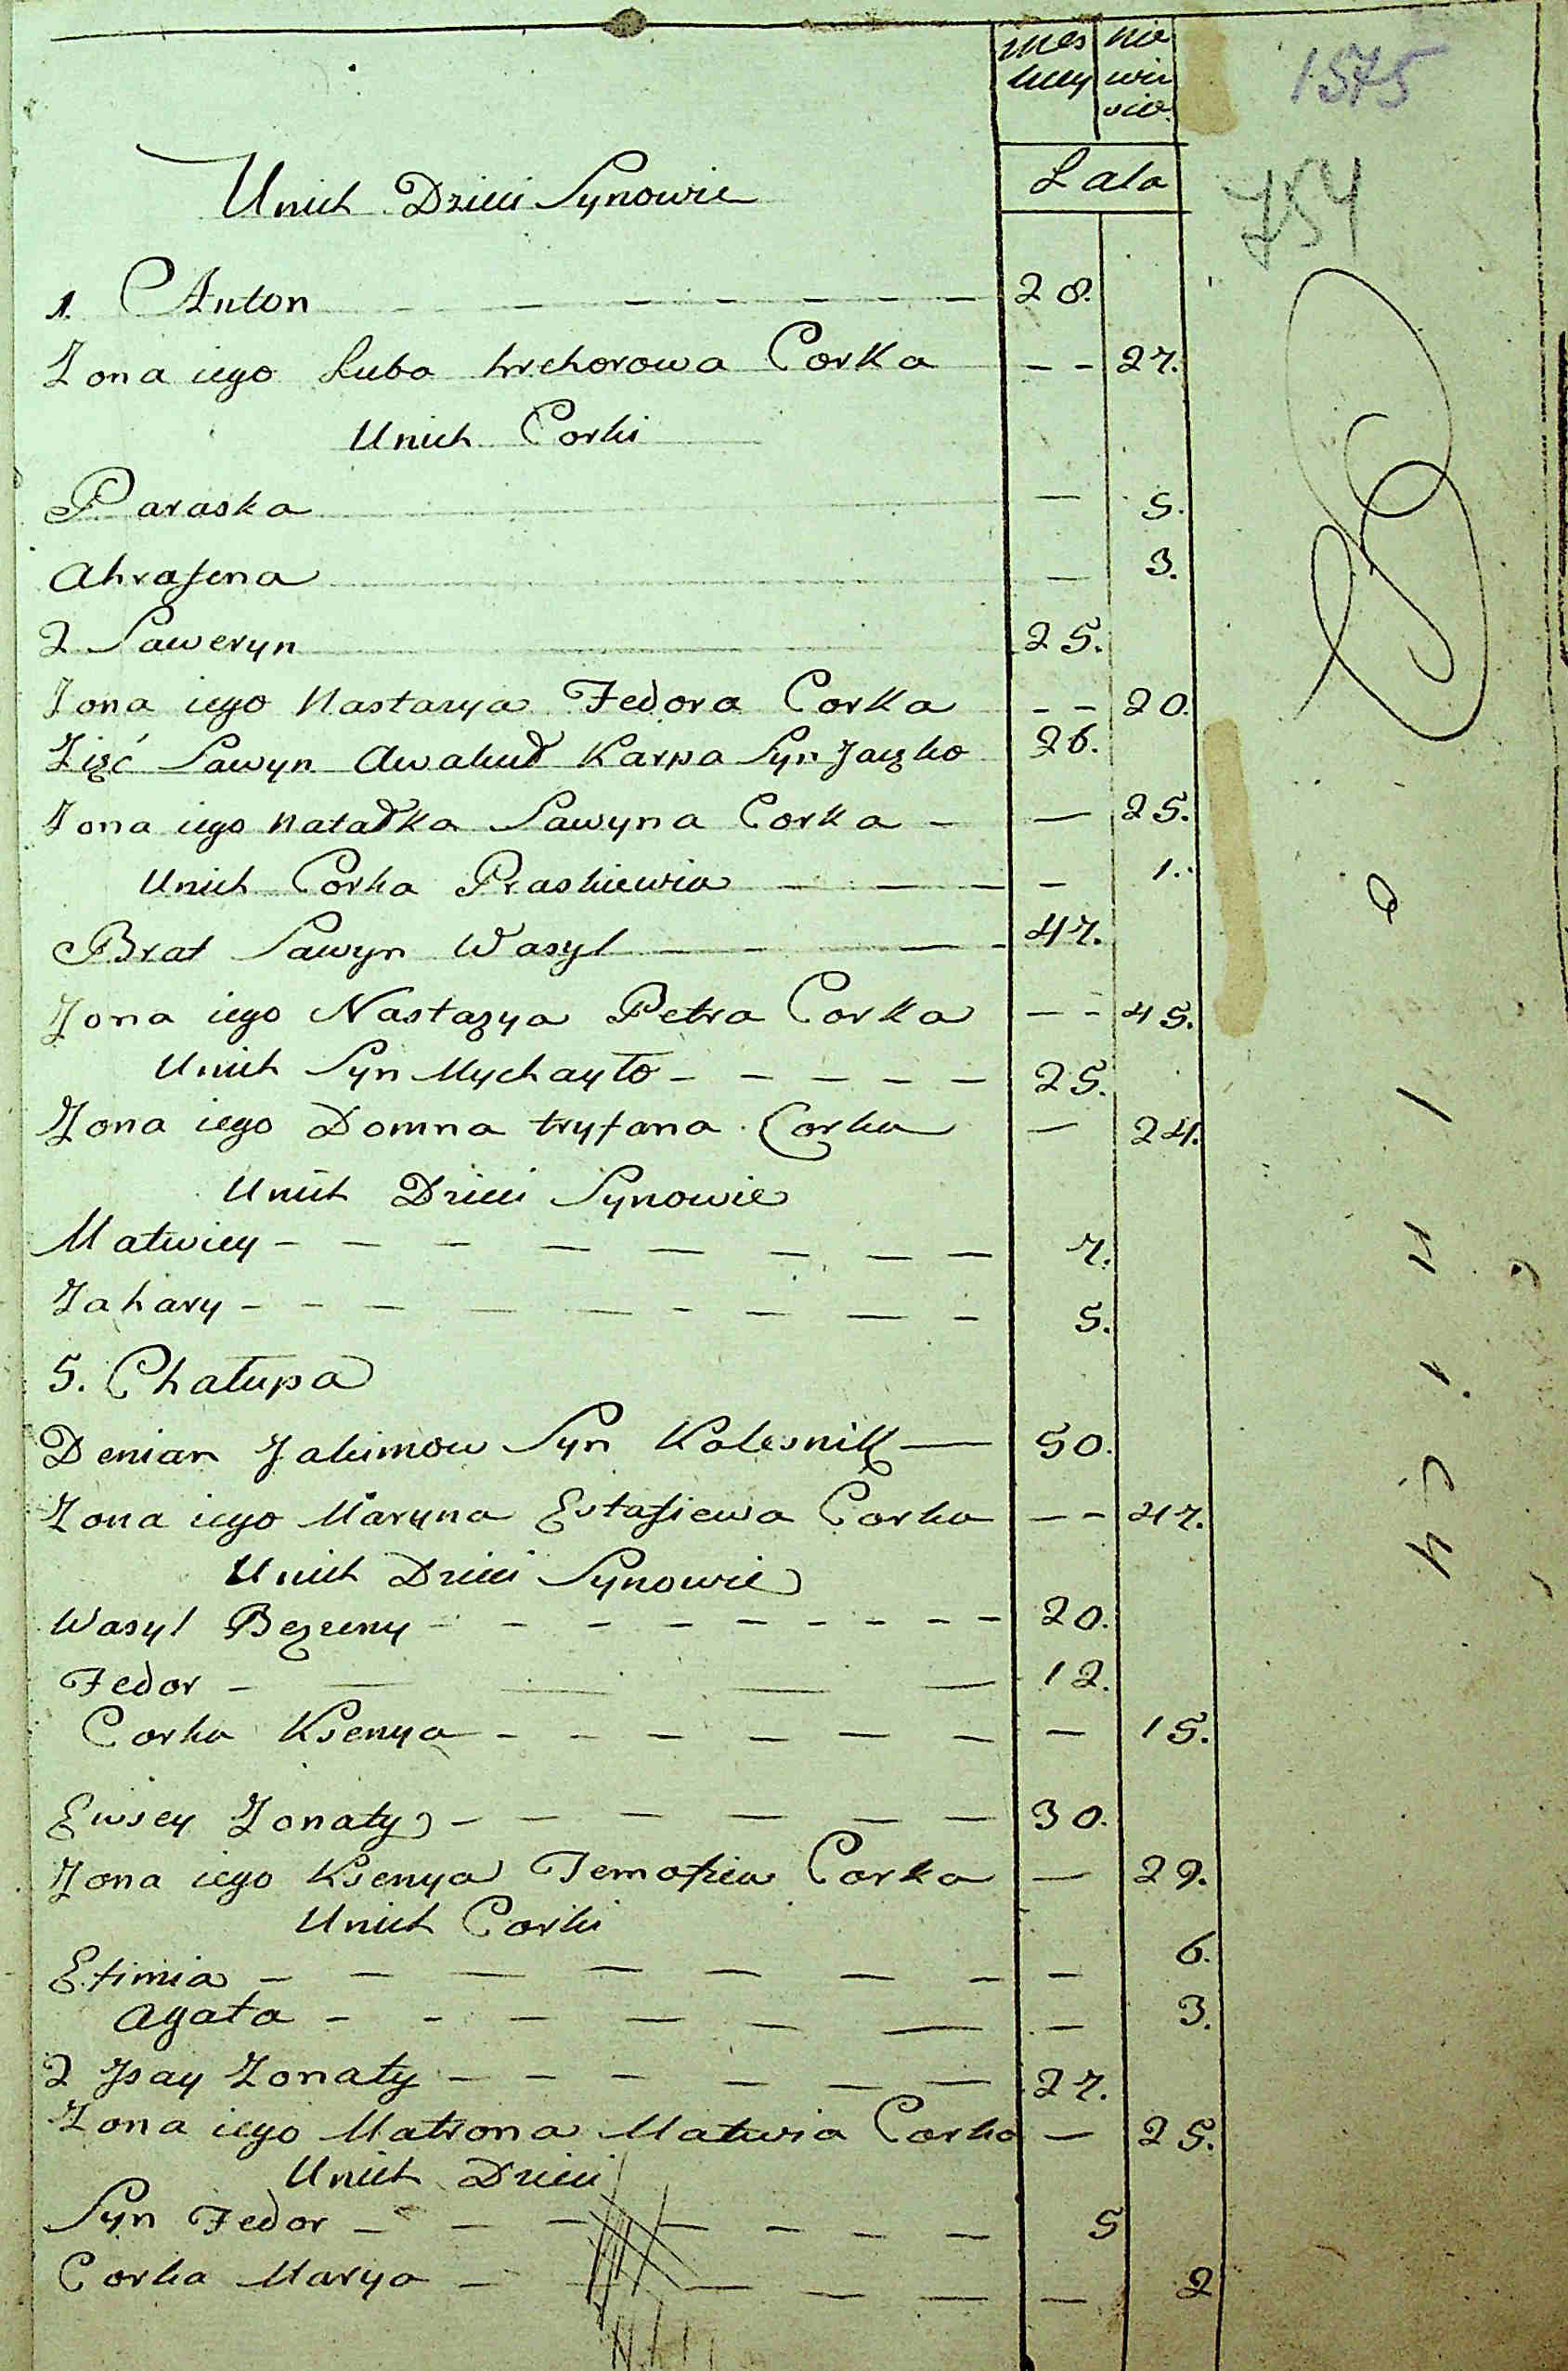 mes nie
kuy wie
scie.
1575
Lata
754
Unich Dzieci Synowie
1. Anton - - - - - - - 28.
Zona iego Luba hrehorowa Corka - - 27.
Unich Corki
Paraska — 5.
Ahrafena — 3.
2 Saweryn 25.
Zona iego Nastazya Fedora Corka - - 20.
Zięć Sawyn Awakuł Karpa Syn Jaczko 26.
Zona iego Natałka Sawyna Corka - — 25.
Unich Corka Praskiewia - - - - 1.
Brat Sawyn Wasyl - - - - 47.
Zona iego Nastazya Petra Corka - - 45.
Unich Syn Mychayło - - - - - 25.
Zona iego Domna tryfana Corka — 24.
Unich Dzieci Synowie
Matwiey - - - - - - - - 7.
Zahary - - - - - - - - - 5.
5. Chałupa
Demian Jakimow Syn Kolesnik — 50.
Zona iego Maryna Estafiewa Corka - - 47.
Unich Dzieci Synowie
Wasyl Bezeny - - - - - - - - 20.
Fedor - - - - - 12.
Corka Ksenya - - - - - - - 15.
Ewsey Zonaty - - - - - - 30.
Zona iego Ksenya Temofiea Corka — 29.
Unich Corki
Efimia - - - - - - - - - 6.
Agata - - - - - - - - 3.
2 Jsay Zonaty - - - - - - 27.
Zona iego Matrona Matwia Corka — 25.
Unich Dzieci
Syn Fedor - - - - - - - 5
Corka Marya - - - - - - 2